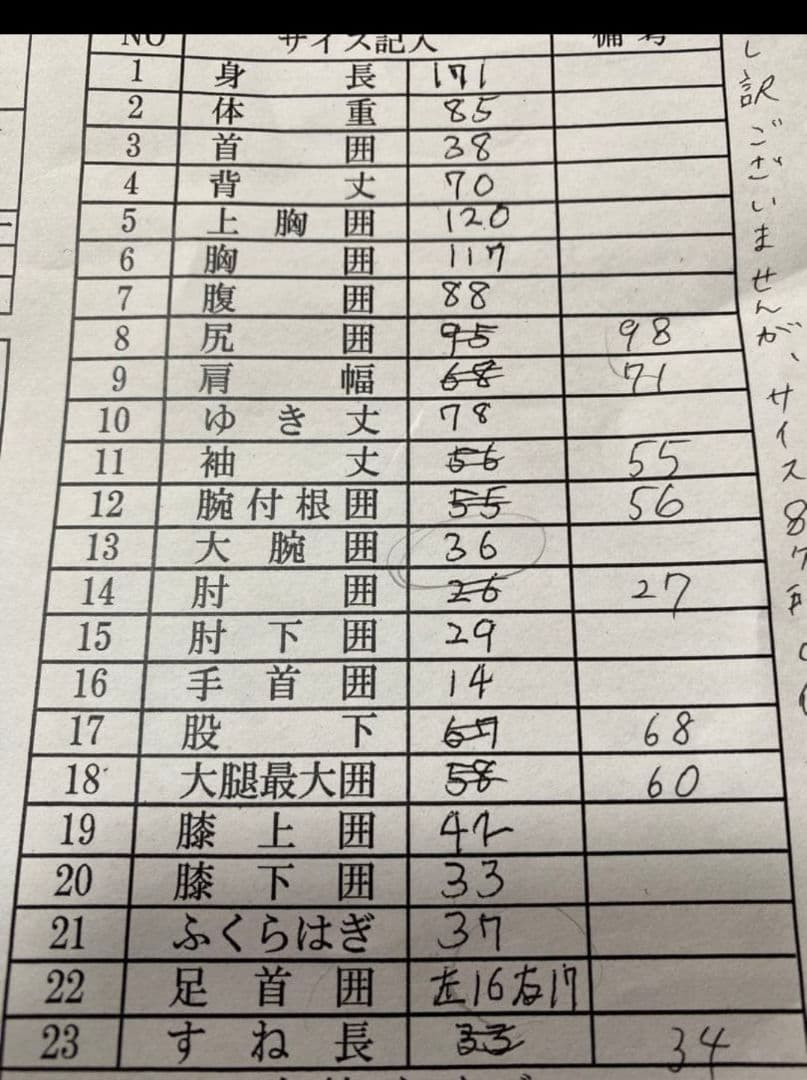 NO サイズ記入 備考
1 身長 171
2 体重 85
3 首囲 38
4 背丈 70
5 上胸囲 120
6 胸囲 117
7 腹囲 88
8 尻囲 95 98
9 肩幅 68 71
10 ゆき丈 78
11 袖丈 56 55
12 腕付根囲 55 56
13 大腕囲 36
14 肘囲 26 27
15 肘下囲 29
16 手首囲 14
17 股下 67 68
18 大腿最大囲 58 60
19 膝上囲 42
20 膝下囲 33
21 ふくらはぎ 37
22 足首囲 左16右17
23 すね長 33 34
し訳ございませんが、サイズ8ケ